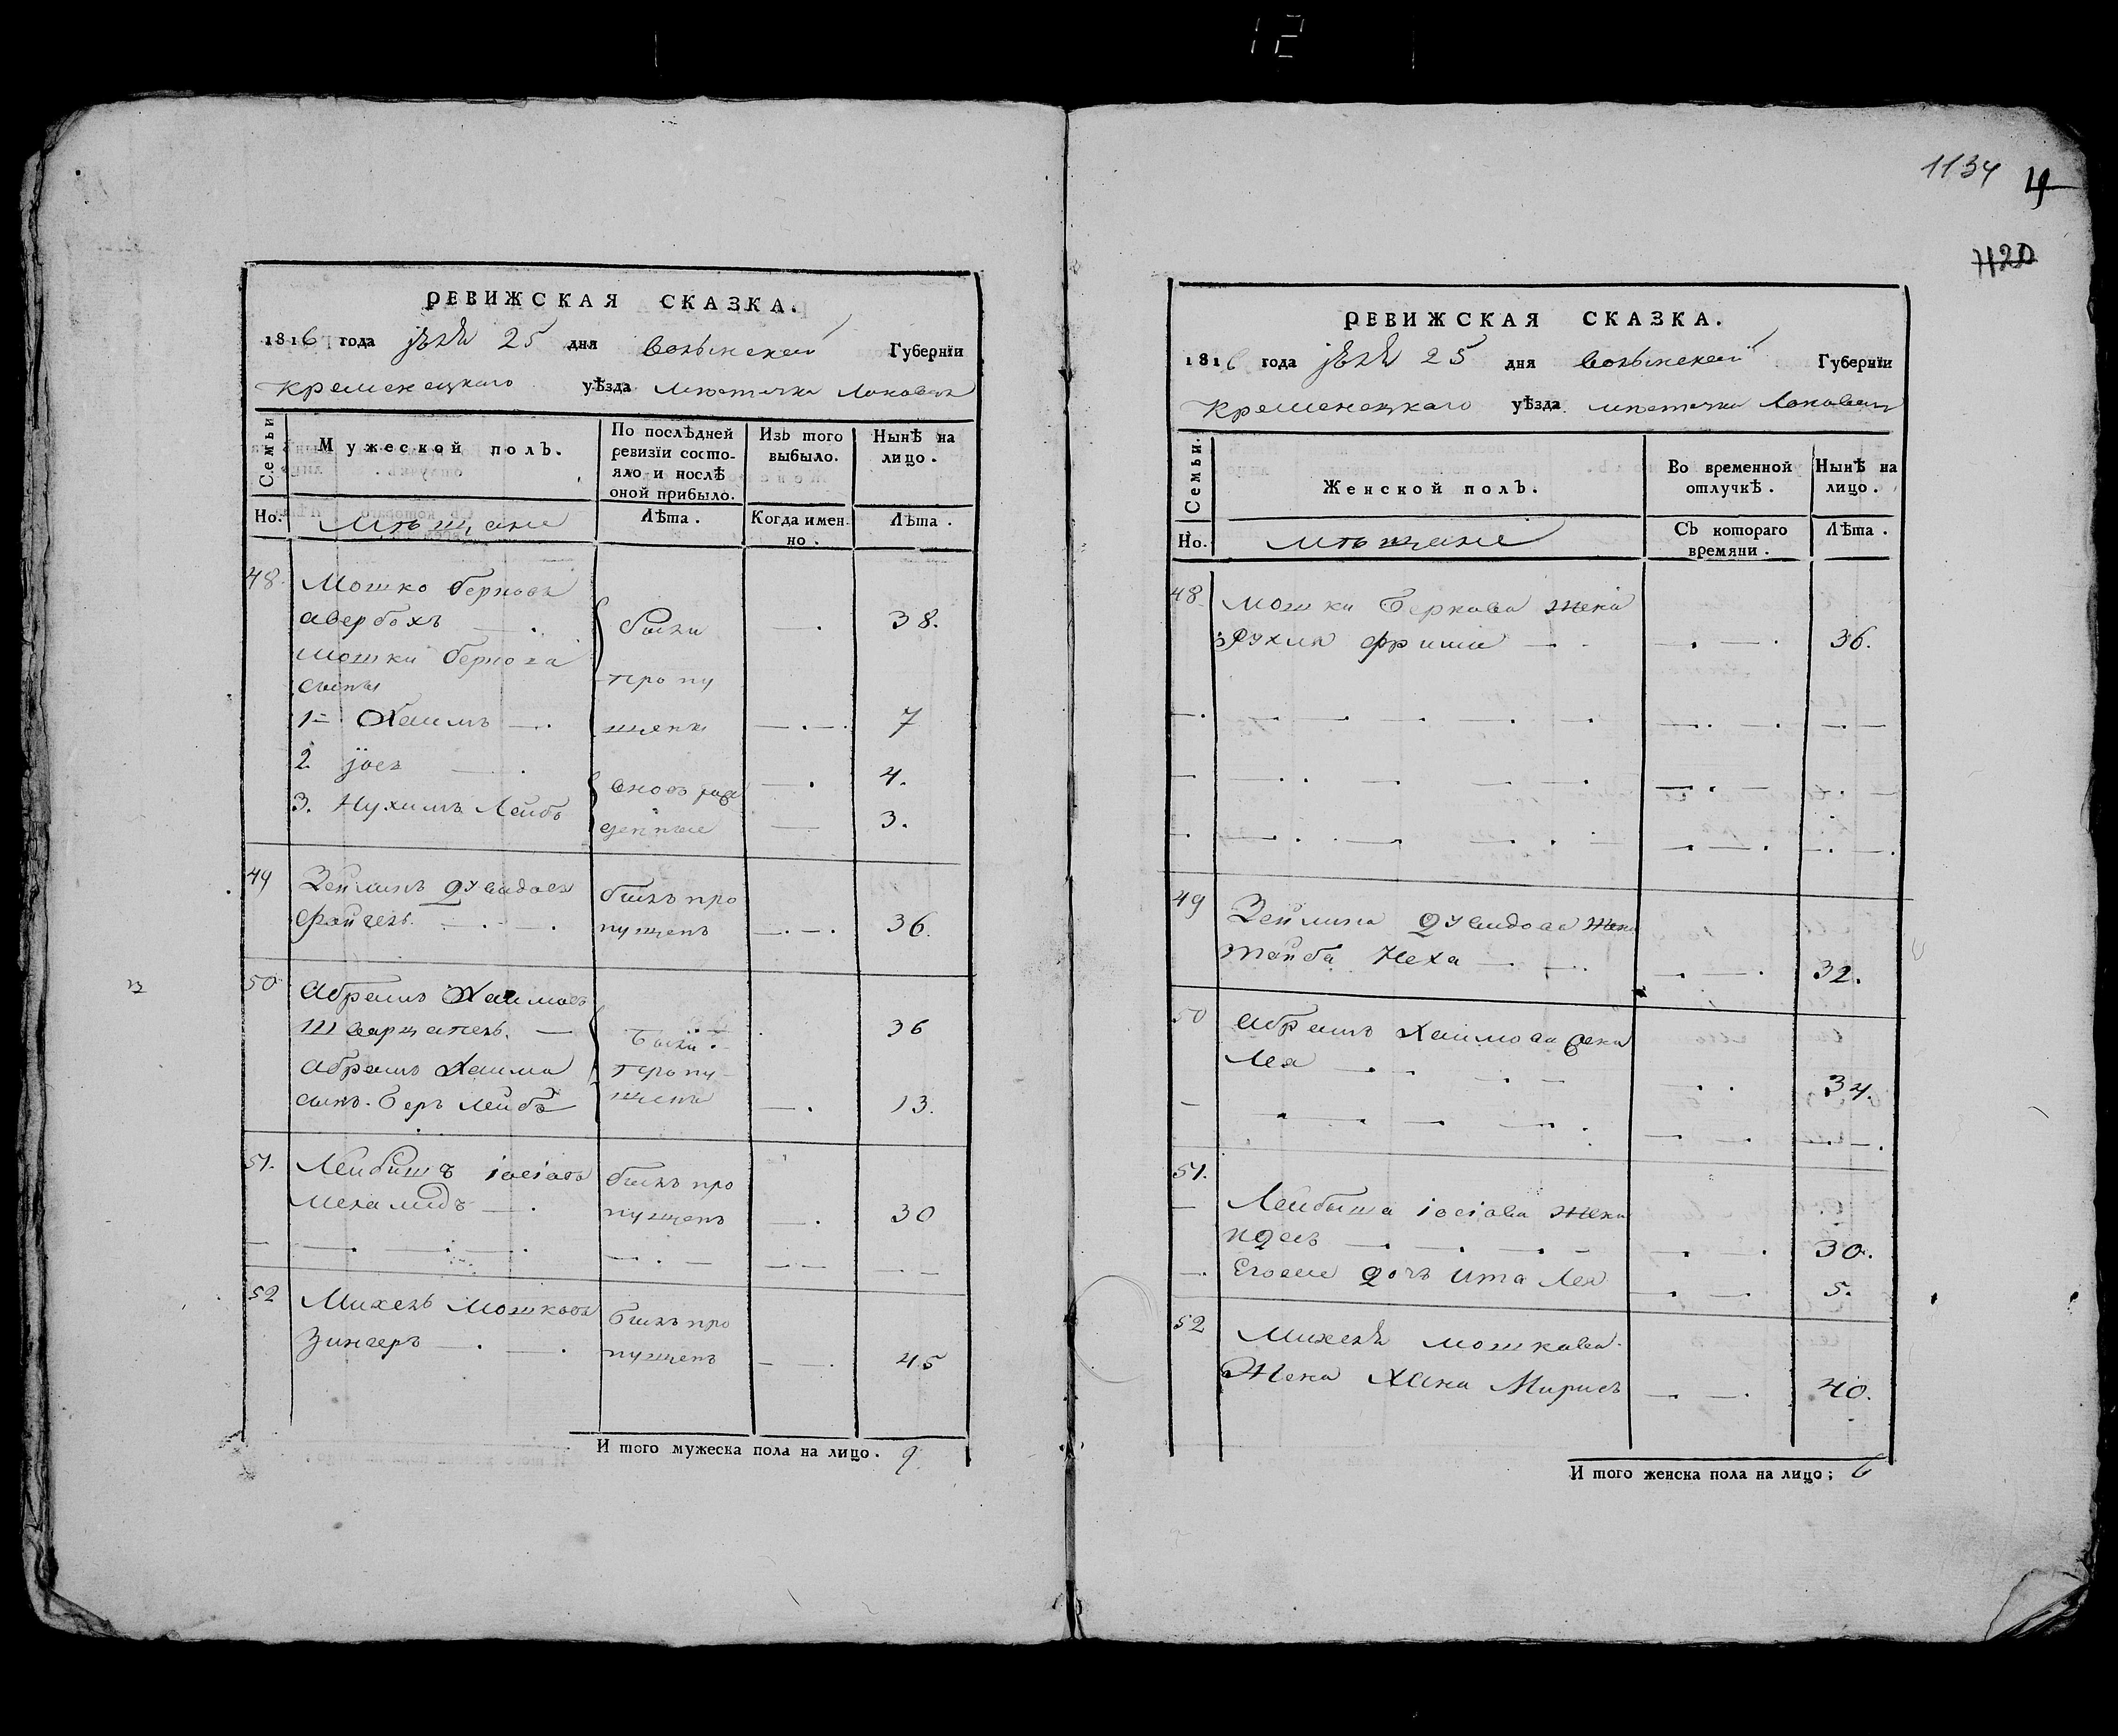 12
1134 4
1120
РЕВИЖСКАЯ СКАЗКА.
1816 года 25 дня Волынской Губернїи
Кременецкаго уѣзда мѣстечка
Семьи
Мужеской полъ.
По послѣдней ревизїи состо-
яло и послѣ
оной прибыло.
Изъ того
выбыло.
Нынѣ на
лицо.
Но. Мѣщане
Лѣта.
Когда имен-
но.
Лѣта.
48. Мошко Берковъ
Авербохъ — . были — . 38.
Мошки Беркова
сыны пропу
1й Хаимъ — . щены — . — . 7
2 іось — . вновь рож — . 4.
3. Нухимъ Лейбъ денные — 3.
49 Зейлинъ Дувидовъ былъ про
Файгель. — . — . пущенъ — . — . 36.
50 Абрамъ Хаимовъ
Шварцапель. — Были 36
Абрамъ Хаима пропу-
сынъ. Беръ Лейбъ щены — . 13.
51. Лейбишъ іосіовъ былъ про
Меламидъ — . пущенъ — . 30
52 Михель Мошковъ былъ про
Зингеръ — . — . пущенъ — . 45
И того мужеска пола на лицо. 9.
РЕВИЖСКАЯ СКАЗКА.
1816 года 25 дня Волынской Губернїи
Кременецкаго уѣзда мѣстечка
Семьи.
Женской полъ.
Во временной
отлучкѣ.
Нынѣ на
лицо.
Но. Мѣщане
Съ котораго
времяни.
Лѣта.
48. Мошки Беркова жена
Рухля Фрима — - — . — . 36.
49 Зейлина Дувидова жена
Тайба Неха — — . — . — . 32.
50 Абрамъ Хаимова жена
Лея — . . — . . 34.
51.
Лейбиша іосіова жена
— . — . — . — — . — . 30.
Егоаже дочь Ита Лея — . — 5.
52 Михеля Мошкова
Жена Хана Мирись — . — . 40.
И того женска пола на лицо; 6